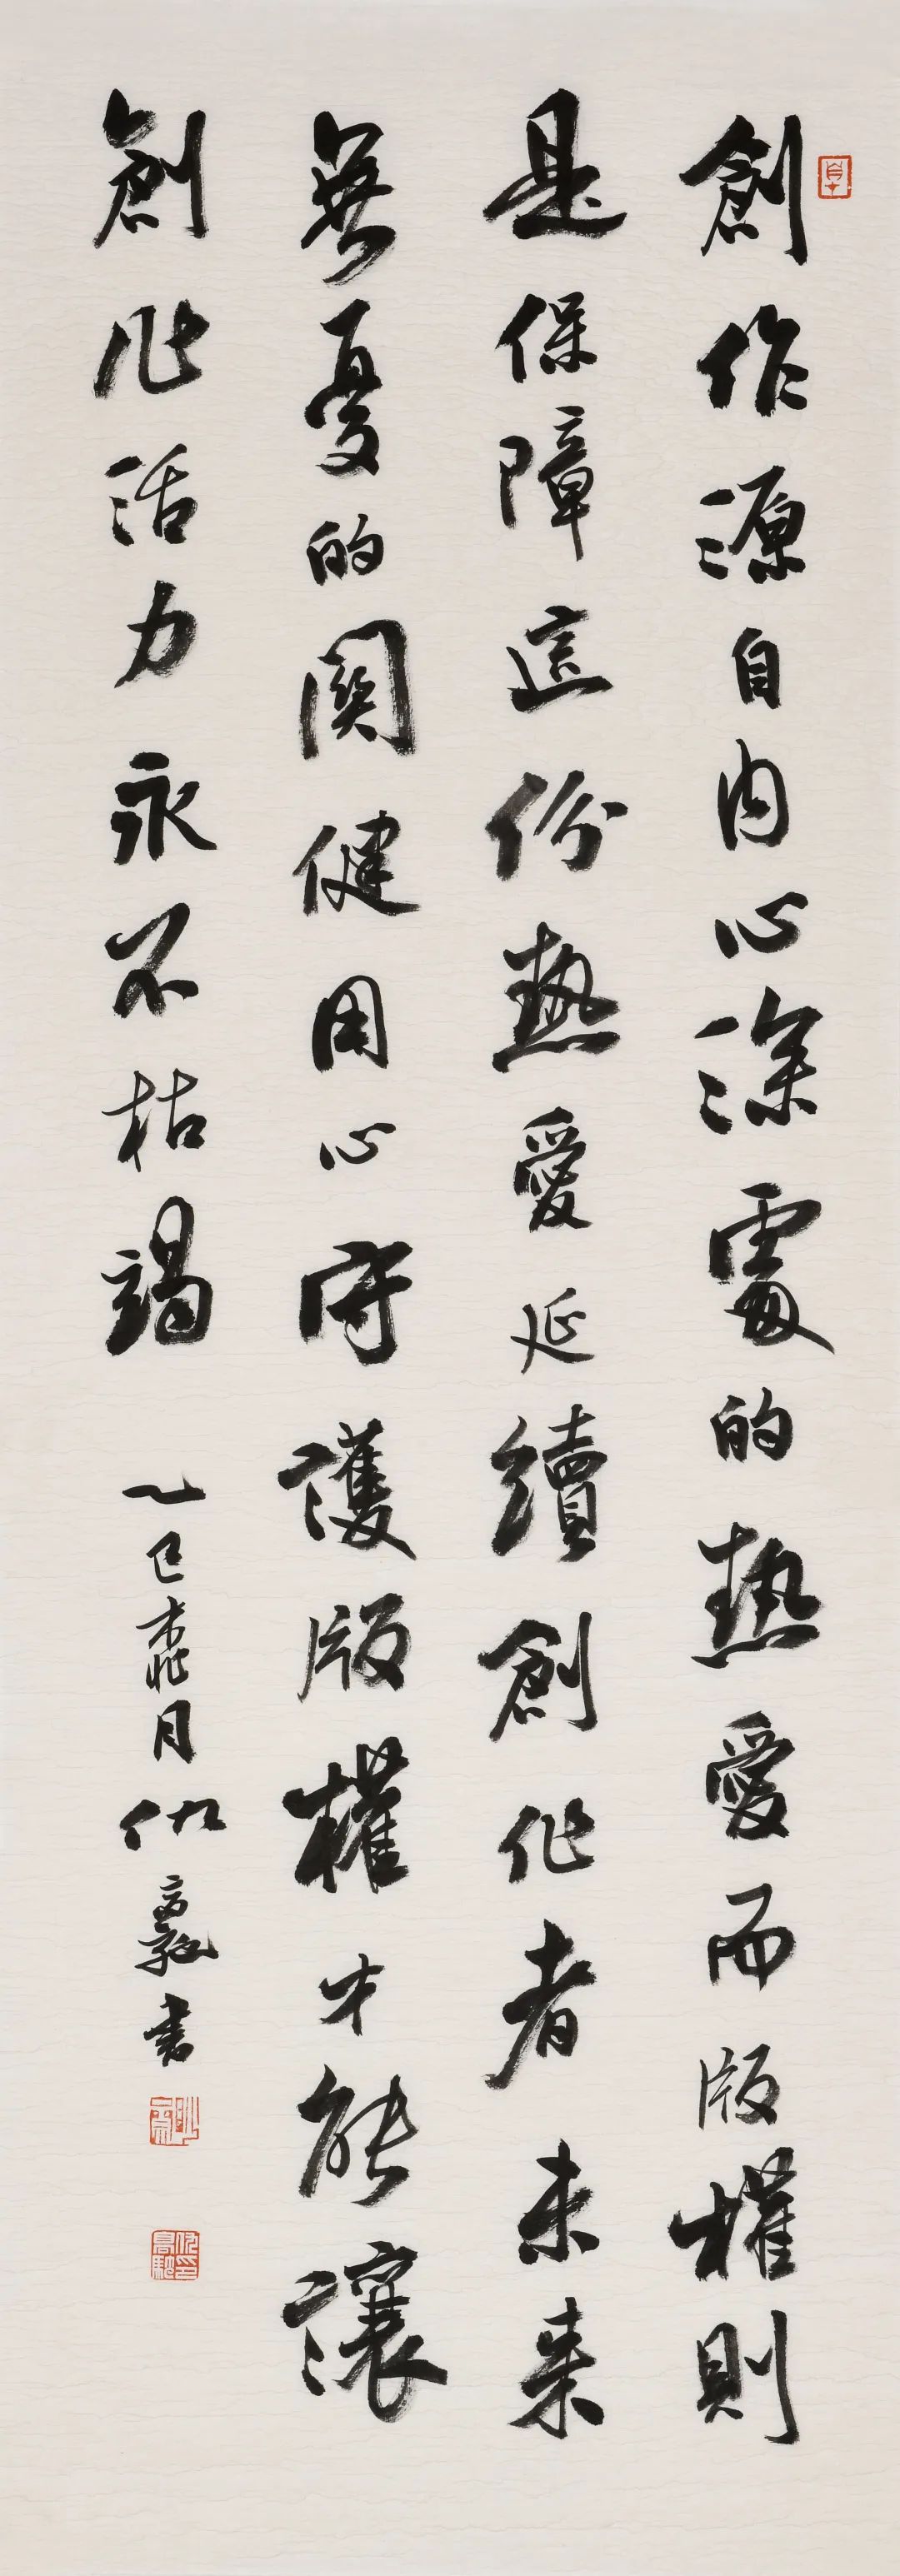 創作源自内心深處的熱愛而版權則
是保障這份熱愛延續創作者未来
無憂的関健用心守護版權才能讓
創作活力永不枯竭
乙巳桃月仇高馳書